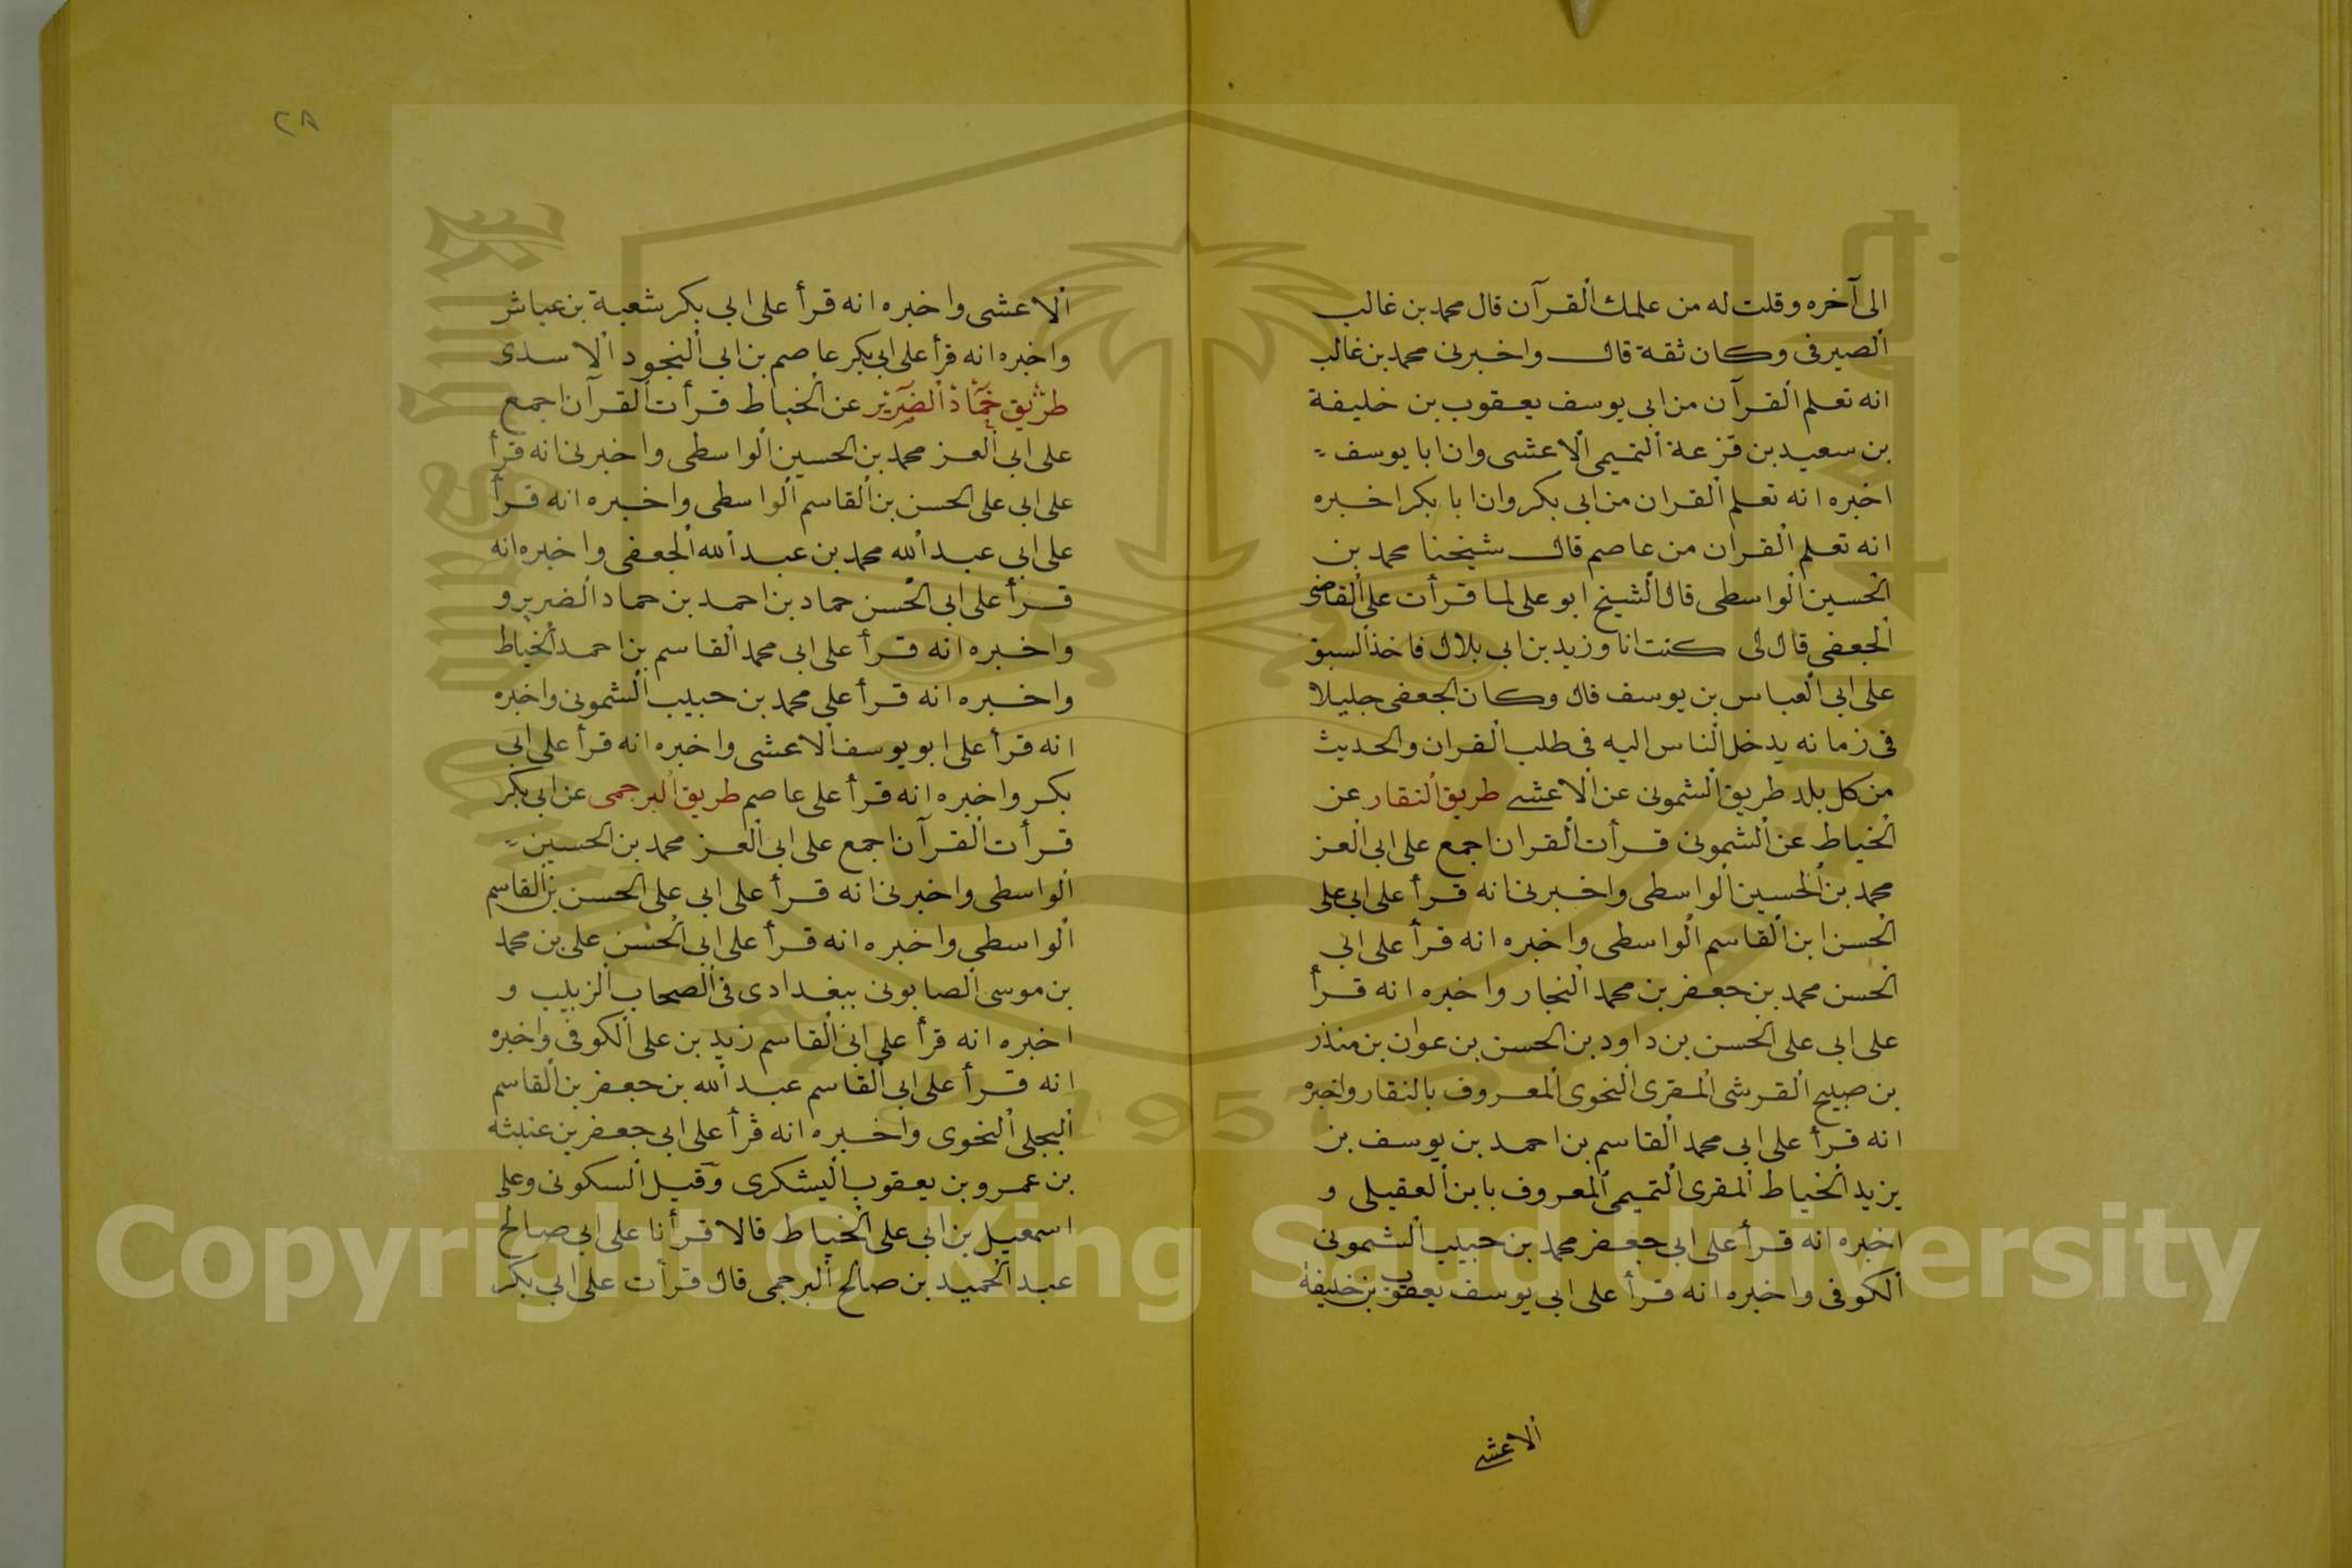 الى آخره وقلت له من علمك القرآن قال محمد بن غالب
الصيرفى وكان ثقة قال واخبرنى محمد بن غالب
انه تعلم القرآن من ابى يوسف يعقوب بن خليفة
بن سعيد بن قزعة التميمى الاعشى وان ابا يوسف
اخبره انه تعلم القران من ابى بكر وان ابا بكر اخبره
انه تعلم القران من عاصم قال شيخنا محمد بن
الحسين الواسطى قال الشيخ ابو على لما قرأت على القاضى
الجعفى قال لى كنت انا وزيد بن ابى بلال فاخذ السبق
على ابى العباس بن يوسف قال وكان الجعفى جليلا
فى زمانه يدخل الناس اليه فى طلب القران والحديث
من كل بلد طريق الشمونى عن الاعشى طريق النقار عن
الخياط عن الشمونى قرأت القران اجمع على ابى العز
محمد بن الحسين الواسطى واخبرنى انه قرأ على ابى على
الحسن ابن القاسم الواسطى واخبره انه قرأ على ابى
الحسن محمد بن جعفر بن محمد النجار واخبره انه قرأ
على ابى على الحسن بن داود بن الحسن بن عوان بن منذر
بن صبيح القرشى المقرى النحوى المعروف بالنقار واخبره
انه قرأ على ابى محمد القاسم بن احمد بن يوسف بن
يزيد الخياط المقرى التميمى المعروف بابن العقيلى و
اخبره انه قرأ على ابى جعفر محمد بن حبيب الشمونى
الكوفى واخبره انه قرأ على ابى يوسف يعقوب بن خليفة
الاعشى
٢٨
الاعشى واخبره انه قرأ على ابى بكر شعبة بن عياش
واخبره انه قرأ على ابى بكر عاصم بن ابى النجود الاسدى
طريق حماد الضرير عن الخياط قرأت القرآن اجمع
على ابى العز محمد بن الحسين الواسطى واخبرنى انه قرأ
على ابى على الحسن بن القاسم الواسطى واخبره انه قرأ
على ابى عبد الله محمد بن عبد الله الجعفى واخبره انه
قرأ على ابى الحسن حماد بن احمد بن حماد الضرير و
واخبره انه قرأ على ابى محمد القاسم بن احمد الخياط
واخبره انه قرأ على محمد بن حبيب الشمونى واخبره
انه قرأ على ابو يوسف الاعشى واخبره انه قرأ على ابى
بكر واخبره انه قرأ على عاصم طريق البرجمى عن ابى بكر
قرأت القرآن اجمع على ابى العز محمد بن الحسين
الواسطى واخبرنى انه قرأ على ابى على الحسن بن القاسم
الواسطى واخبره انه قرأ على ابى الحسن على بن محمد
بن موسى الصابونى ببغدادى فى الصحاب الزبيب و
اخبره انه قرأ على ابى القاسم زيد بن على الكوفى واخبره
انه قرأ على ابى القاسم عبد الله بن جعفر بن القاسم
البجلى النحوى واخبره انه قرأ على ابى جعفر بن عنبثه
بن عمرو بن يعقوب اليشكرى وقيل السكونى وعلى
اسمعيل بن ابى على الخياط قالا قرأنا على ابى صالح
عبد الحميد بن صالح البرجمى قال قرأت على ابى بكر
Copyright © King Saud University
1957